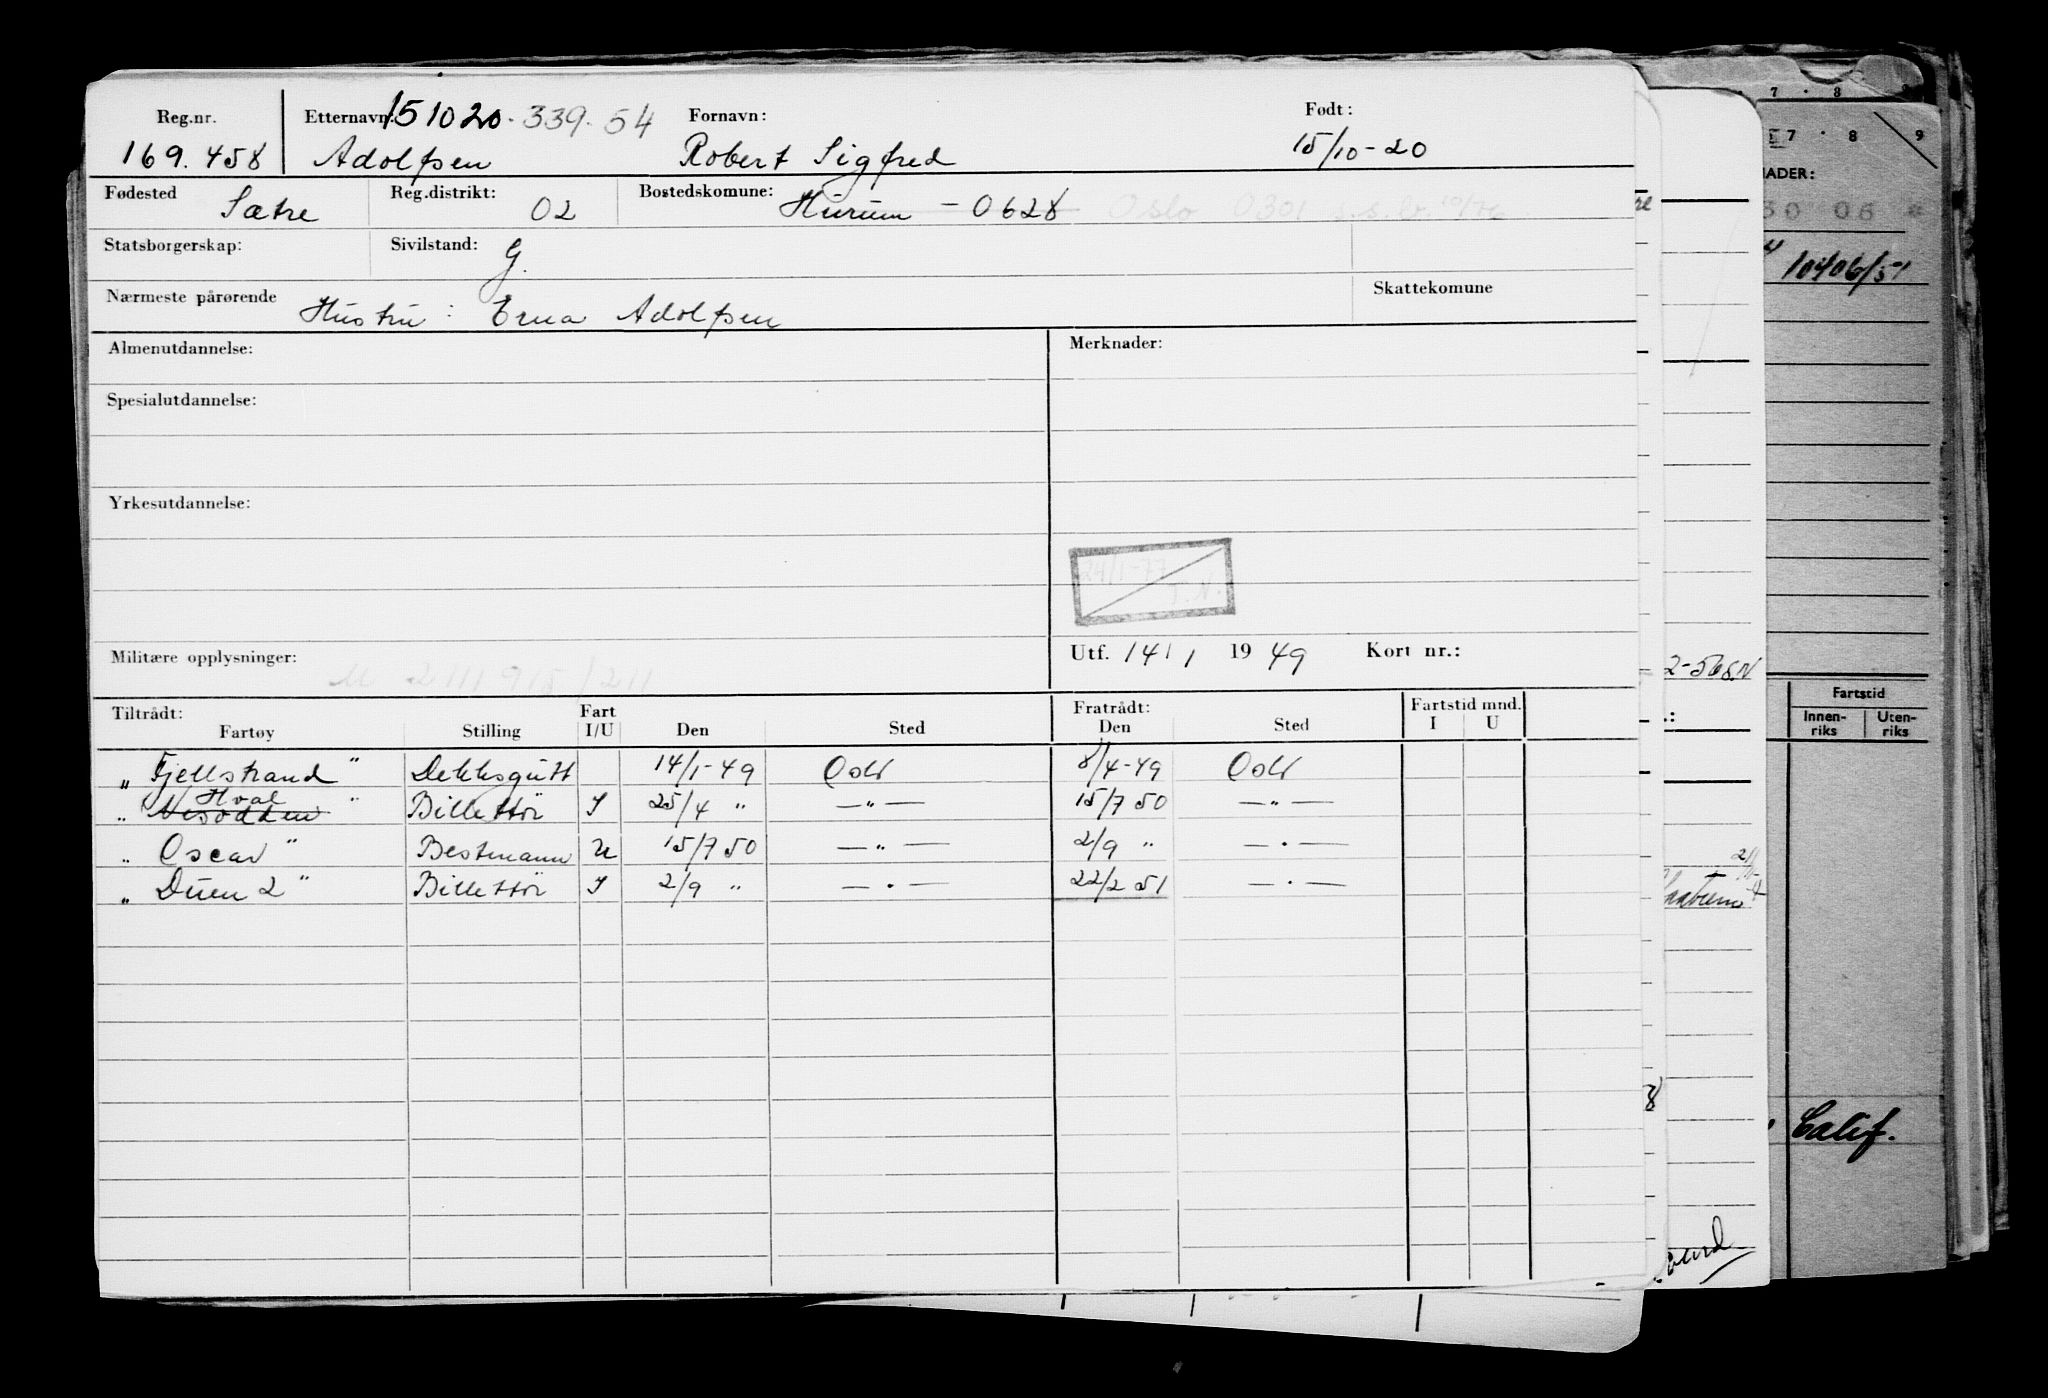 Reg.nr. Etternavn: 151020.339.54 Fornavn: Født:
169.458 Adolfsen Robert Sigfred 15/10-20
Fødested Sætre Reg.distrikt: 02 Bostedskomune: Hurum - 0628 Oslo 0301 s.s.br. 10/76
Statsborgerskap: Sivilstand: G.
Nærmeste pårørende Hustru: Erna Adolfsen Skattekomune
Almenutdannelse: Merknader:
Spesialutdannelse:
Yrkesutdannelse:
24/1-77
T.N.
Militære opplysninger: M 2111915/211 Utf. 14/1 1949 Kort nr.:
Tiltrådt: Fart Fratrådt: Fartstid mnd.
Fartøy Stilling I/U Den Sted Den Sted I U
„ Fjellstrand " Dekksgutt 14/1-49 Oslo 8/4-49 Oslo
Hval
„ Nesodden " Billettör I 25/4 " —"— 15/7 50 —"—
„ Oscar " Bestmann U 15/7 50 —"— 2/9 " —"—
„ Duen 2 " Billettör I 2/9 " —"— 22/2 51 —"—
7 . 8
7 . 8 9
NADER:
30 06
10406/51
2-568N
Fartstid
Innen-
riks
Uten-
riks
8
Calif.